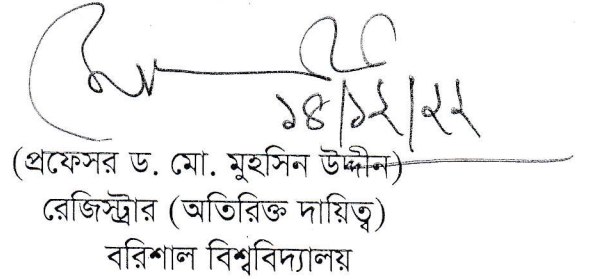 ১৪/১২/২২
(প্রফেসর ড. মো. মুহসিন উদ্দীন)
রেজিস্ট্রার (অতিরিক্ত দায়িত্ব)
বরিশাল বিশ্ববিদ্যালয়